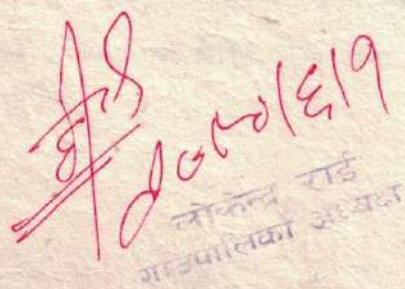 २०८०/६/१
लोकेन्द्र राई
गाउँपालिका अध्यक्ष